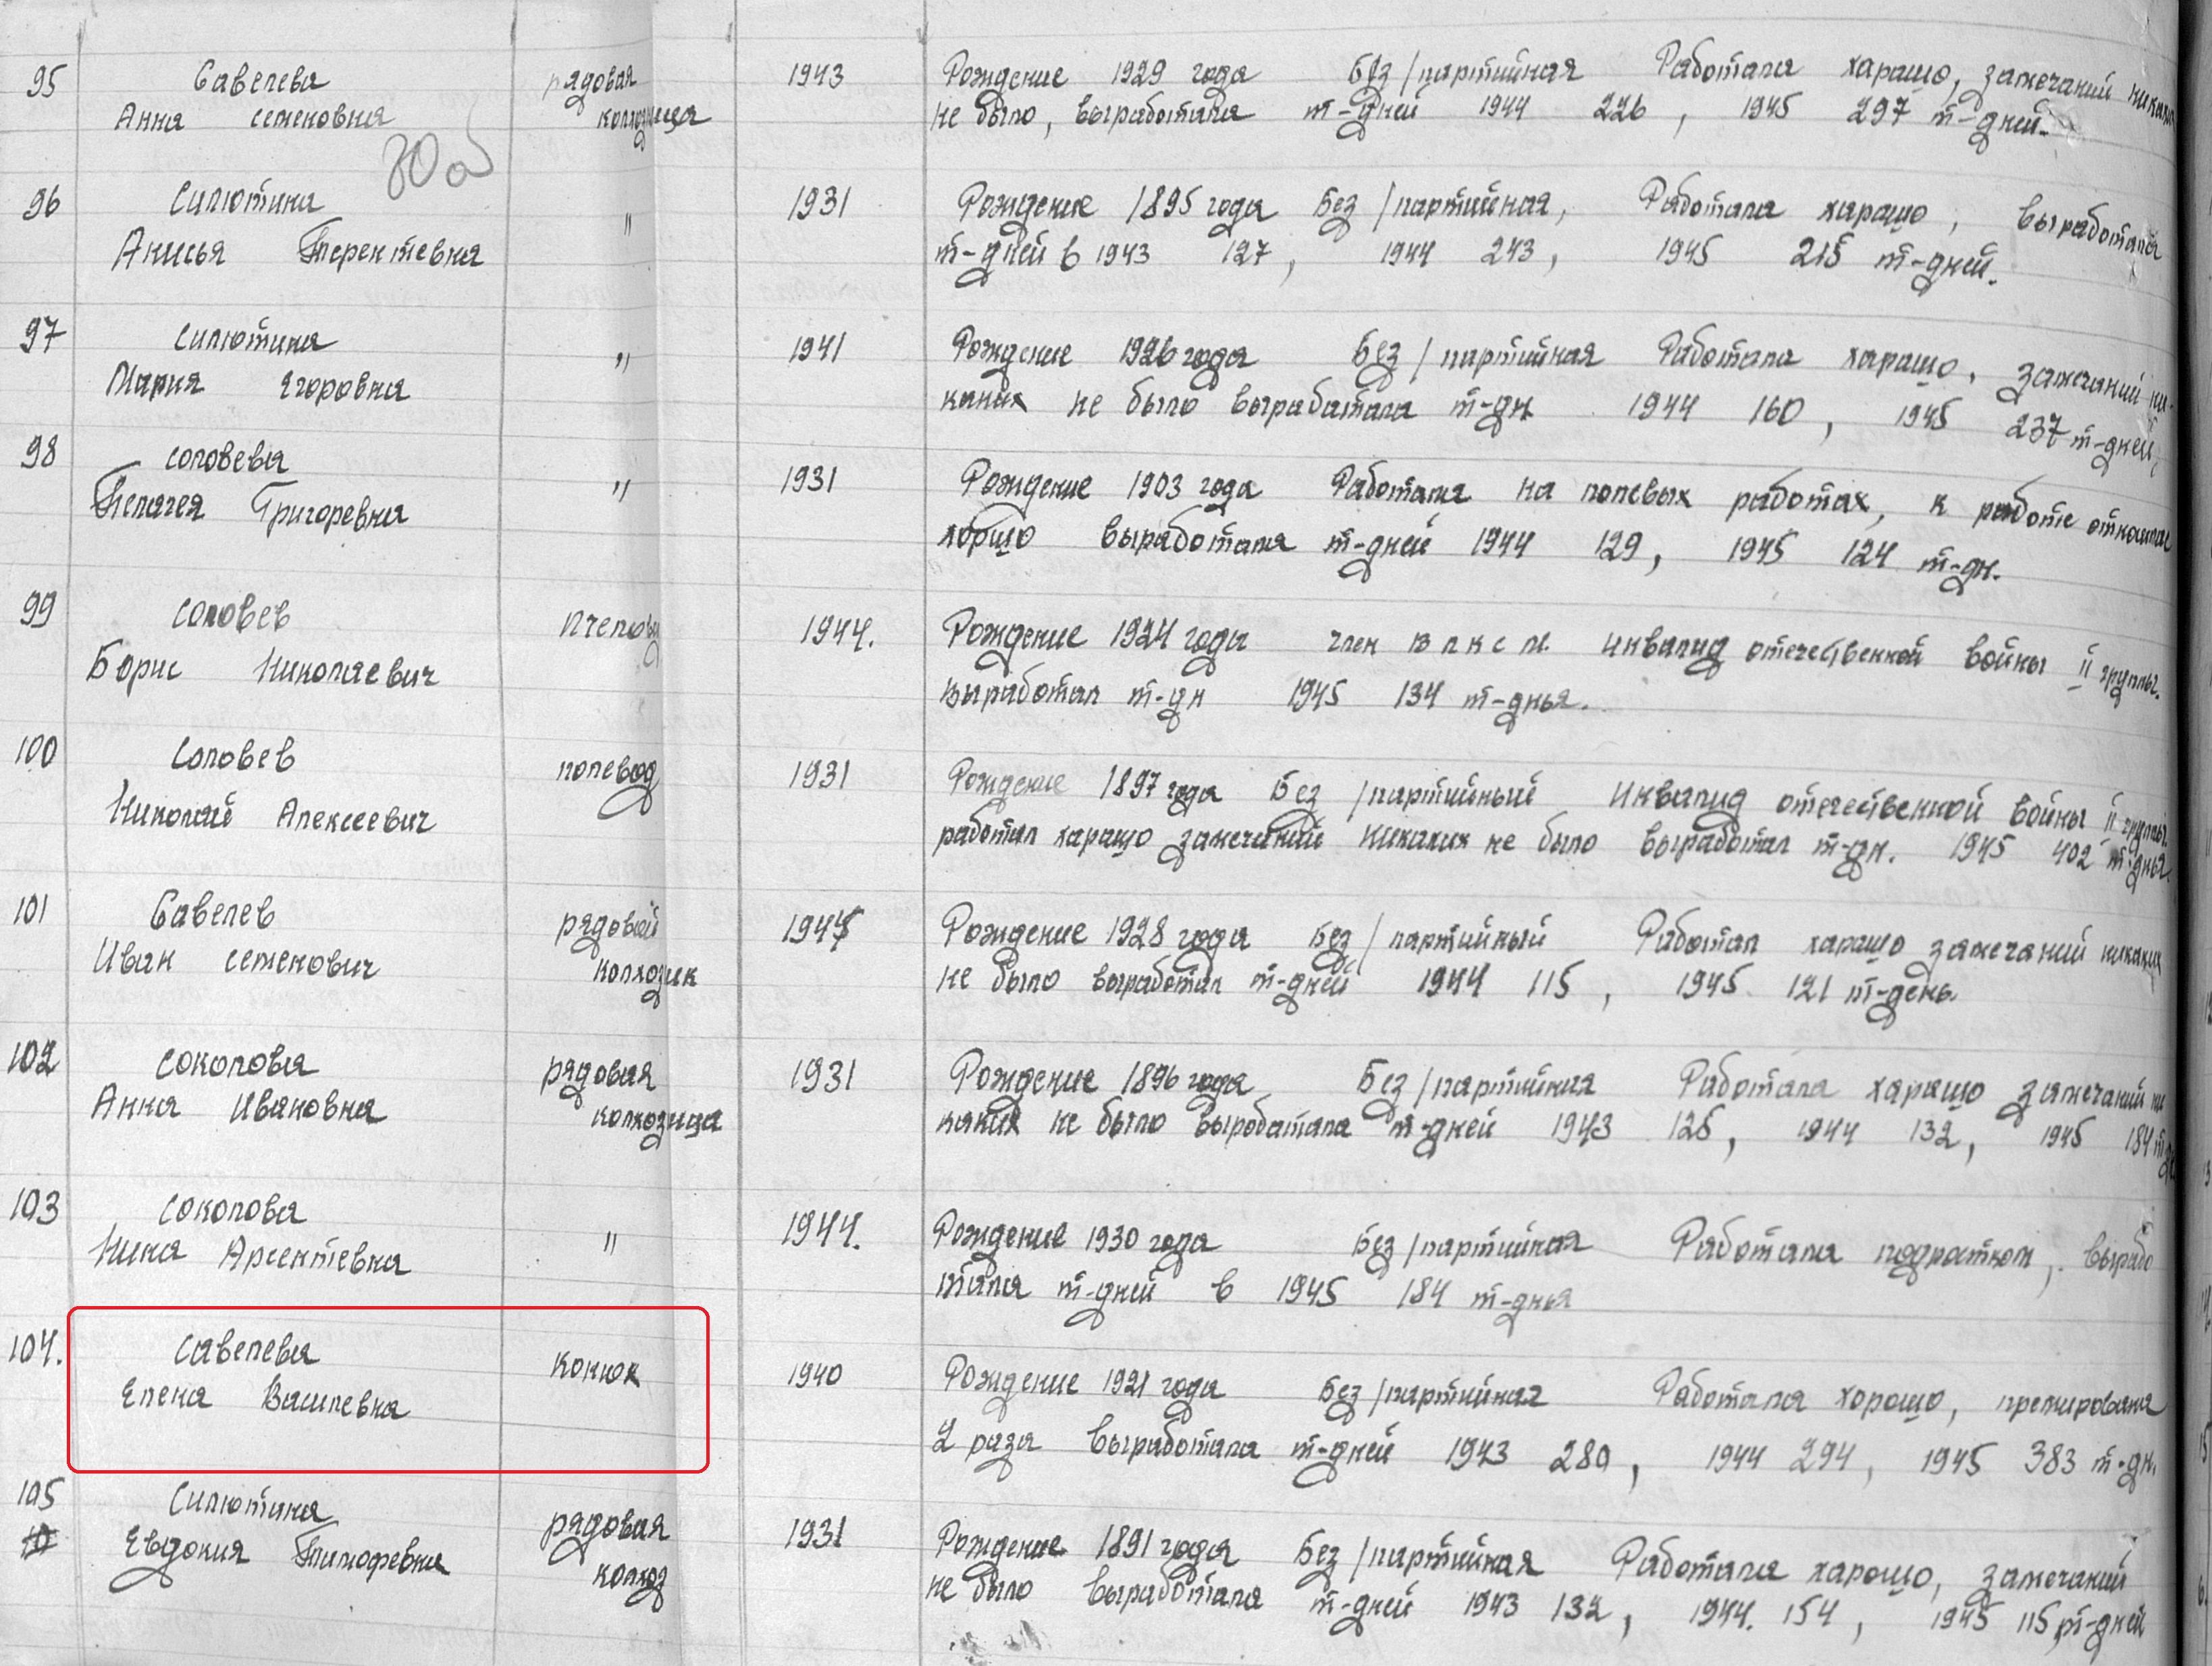 95 Савелева рядовая 1943 Рождение 1929 года Без/партийная Работала харашо, замечаний никаких
Анна семеновна колхозница не было, выработала т-дней 1944 226, 1945 297 т-дней.
30 об
96 Силютина " 1931 Рождение 1895 года Без/партийная, Работала харашо, выработала
Анисья Терентевна т-дней в 1943 127, 1944 243, 1945 215 т-дней.
97 Силютина " 1941 Рождение 1926 года Без/партийная Работала харашо, замечаний ни-
Мария Егоровна каких не было вырабатала т-дн 1944 160, 1945 237 т-дней,
98 соловева " 1931 Рождение 1903 года Работала на полевых работах, к работе
Пелагея Григоревна хоршо выработала т-дней 1944 129, 1945 124 т-дн.
99 соловев Пчеловод 1944. Рождение 1924 года член в л к с м. инвалид отечественной войны II группы.
Борис Николаевич выработал т-дн 1945 134 т-дня.
100 Соловев полевод 1931 Рождение 1897 года Без/партийный инвалид отечественной войны II группы.
Николай Алексеевич работал харашо замечаний никаких не было выработал т-дн. 1945 402 т-дня.
101 Савелев рядовой 1944 Рождение 1928 года Без/партийный Работал харашо замечаний никаких
Иван семенович колхозник не было выработал т-дней 1944 115, 1945 121 т-день.
102 соколова рядовая 1931 Рождение 1896 года Без/партийная Работала харашо замечаний ни
Анна Ивановна колхозница каких не было выробатала т-дней 1943 125, 1944 132, 1945 184
103 соколова " 1944. Рождение 1930 года Без/партийная Работала вырабо
Нина Арсентевна тала т-дней в 1945 184 т-дня
104. Савелева Конюх 1940 Рождение 1921 года Без/партийная Работала хорошо, премирована
Елена Василевна 2 раза выработала т-дней 1943 280, 1944 294, 1945 383 т-дн.
105 Силютина рядовая 1931 Рождение 1891 года Без/партийная Работала харошо, замечаний
Евдокия Тимофевна колхоз не было выработала т-дней 1943 132, 1944. 154, 1945 115 т-дней